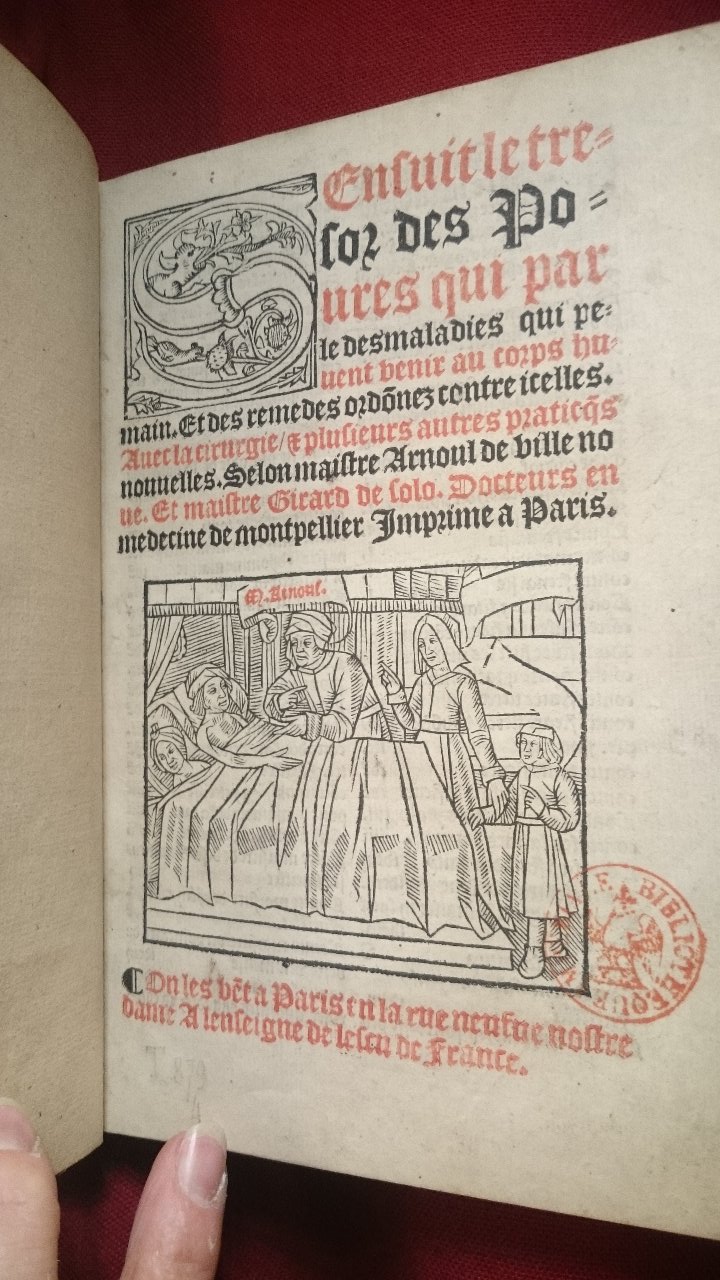 SEnsuit le tre-
sor des Po-
ures qui par
le des maladies qui pe-
uent venir au corps hu-
main. Et des remedes ordõnez contre icelles.
Auec la cirurgie / & plusieurs autres praticq̃s
nouuelles. Selon maistre Arnoul de ville no
ue. Et maistre Girard de solo. Docteurs en
medecine de montpellier Imprime a Paris.
M. Arnoul.
BIBLIOTEQUE
¶ On les vẽt a Paris en la rue neufue nostre
dame A lenseigne de lescu de France.